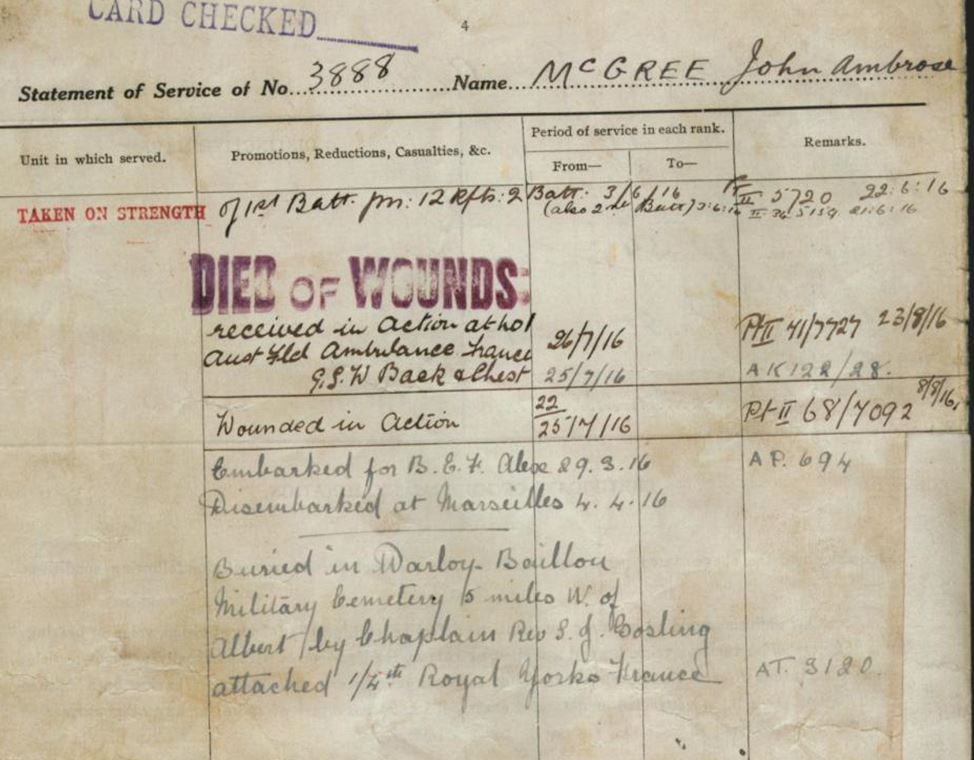 CARD CHECKED
4
Statement of Service of No. 3888 Name McGREE John Ambrose
Unit in which served.
Promotions, Reductions, Casualties, &c.
Period of service in each rank.
From—
To—
Remarks.
TAKEN ON STRENGTH of 1st Batt. fm: 12 Rfts: 2 Batt. 3/6/16 II 5720 22:6:16
(also 2nd Batt) 21:6:16
DIED OF WOUNDS:
received in Action at No1 26/7/16 Pt II 41/7727 23/8/16
Aust Fld Ambulance France
G.S.W Back & Chest 25/7/16 AK122/28.
Wounded in Action 22/25/7/16 Pt II 68/7092 8/8/16.
Embarked for B.E.F. Alex 29.3.16 AP. 694
Disembarked at Marseilles 4.4.16
Buried in Warloy-Baillon
Military Cemetery 5 miles W. of
Albert by Chaplain Rev S. J. Gosling
attached 1/4th Royal Yorks France AT. 3120.